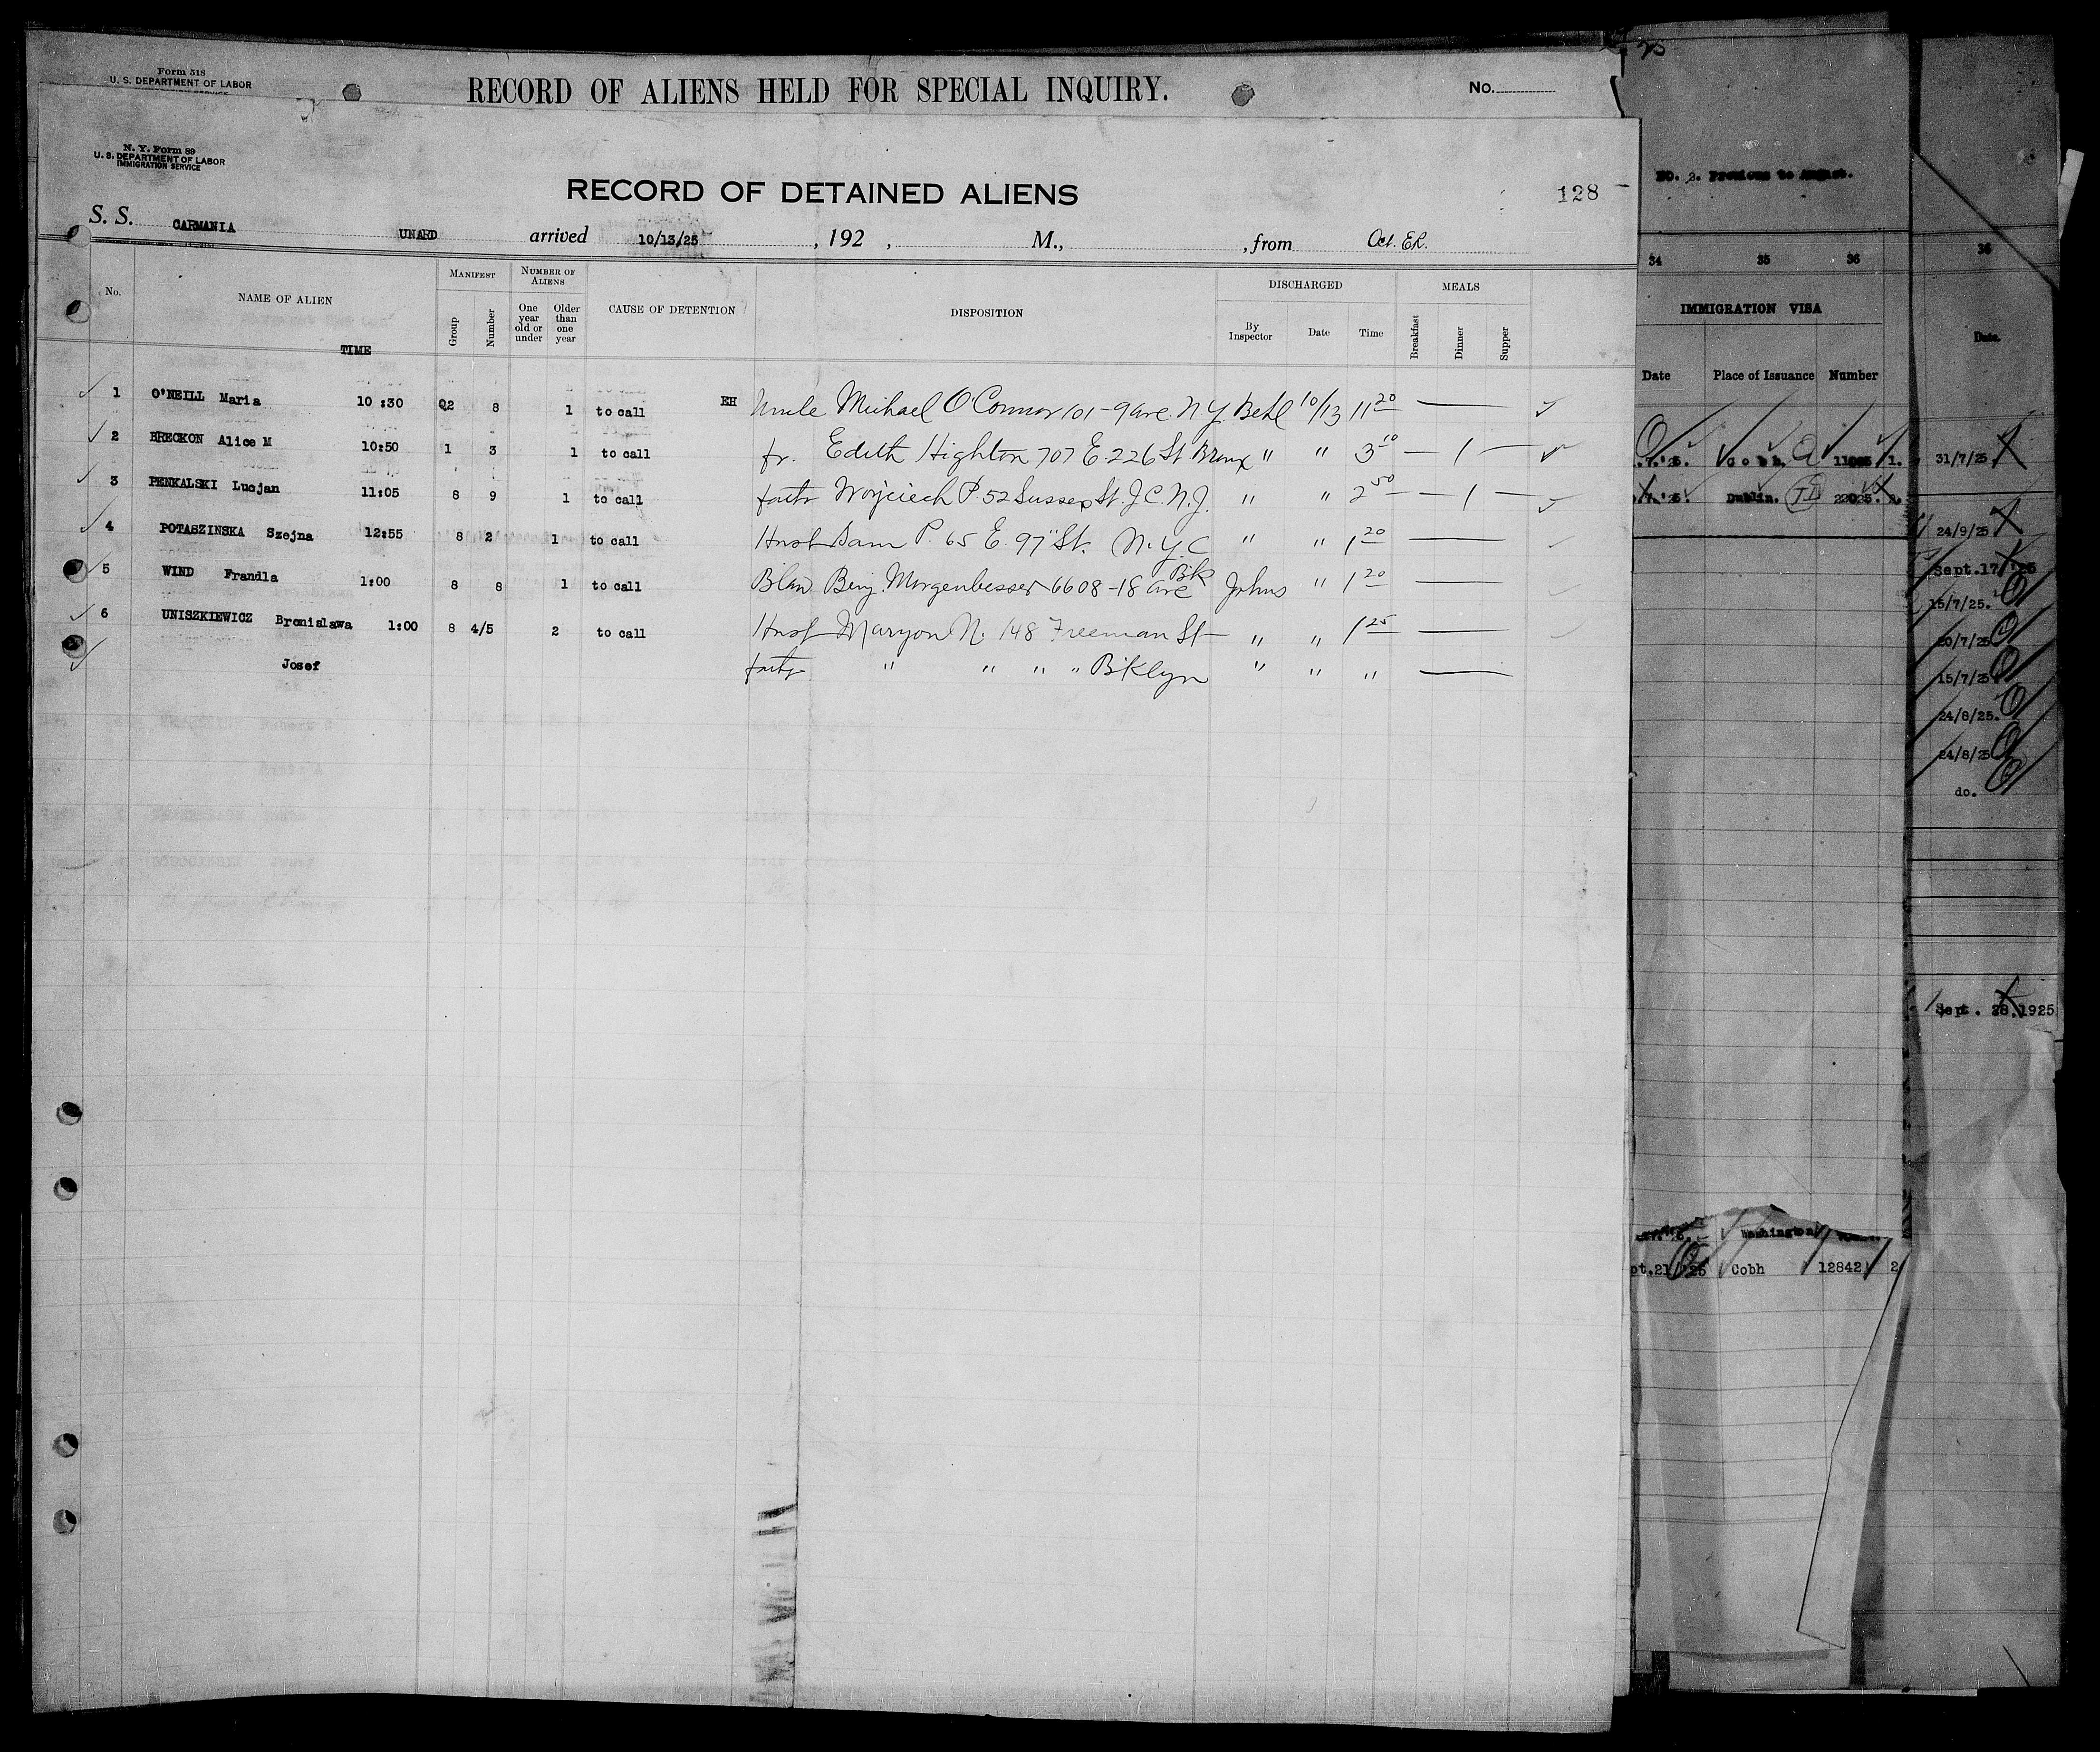 Form 518
U. S. DEPARTMENT OF LABOR
RECORD OF ALIENS HELD FOR SPECIAL INQUIRY.
No.
N. Y. Form 89
U. S. DEPARTMENT OF LABOR
IMMIGRATION SERVICE
RECORD OF DETAINED ALIENS
128
S. S. CARMANIA UNARD arrived 10/13/25 , 192 , M., , from Oct. E.R.
No. NAME OF ALIEN TIME MANIFEST Group Number NUMBER OF ALIENS One year old or under Older than one year CAUSE OF DETENTION DISPOSITION DISCHARGED By Inspector Date Time MEALS Breakfast Dinner Supper
1 O'NEILL Maria 10:30 Q2 8 1 to call EH Uncle Michael O'Connor 101-9 Ave. N.Y. 10/13 11 20
2 BRECKON Alice M 10:50 1 3 1 to call fr. Edith Highton 707 E. 226 St Bronx " " 3 10 — 1 —
3 PENKALSKI Lucjan 11:05 8 9 1 to call fath Wojciech P. 52 Sussex St. J.C. N.J. " " 2 50 — 1 —
4 POTASZINSKA Szejna 12:55 8 2 1 to call Husb Sam P. 65 E. 97" St. N.Y.C " " 1 20
5 WIND Frandla 1:00 8 8 1 to call Blaw Benj. Morgenbesser 6608-18 Ave Bk Johns " 1 20
6 UNISZKIEWICZ Bronislawa 1:00 8 4/5 2 to call Husb Maryon N. 148 Freeman St " " 1 25
Josef fath " " " " Bklyn " " "
NO. 2. Previous to August.
34 35 36
IMMIGRATION VISA
Date Place of Issuance Number
.7.'25. Cobh. 1.
.7.'25. Dublin. 22025.
Washington
pt.21/'25 Cobh 12842 2
36
Date.
31/7/25
24/9/25
Sept.17/'25
15/7/25.
20/7/25
15/7/25
24/8/25.
24/8/25
do.
Sept. 28,1925